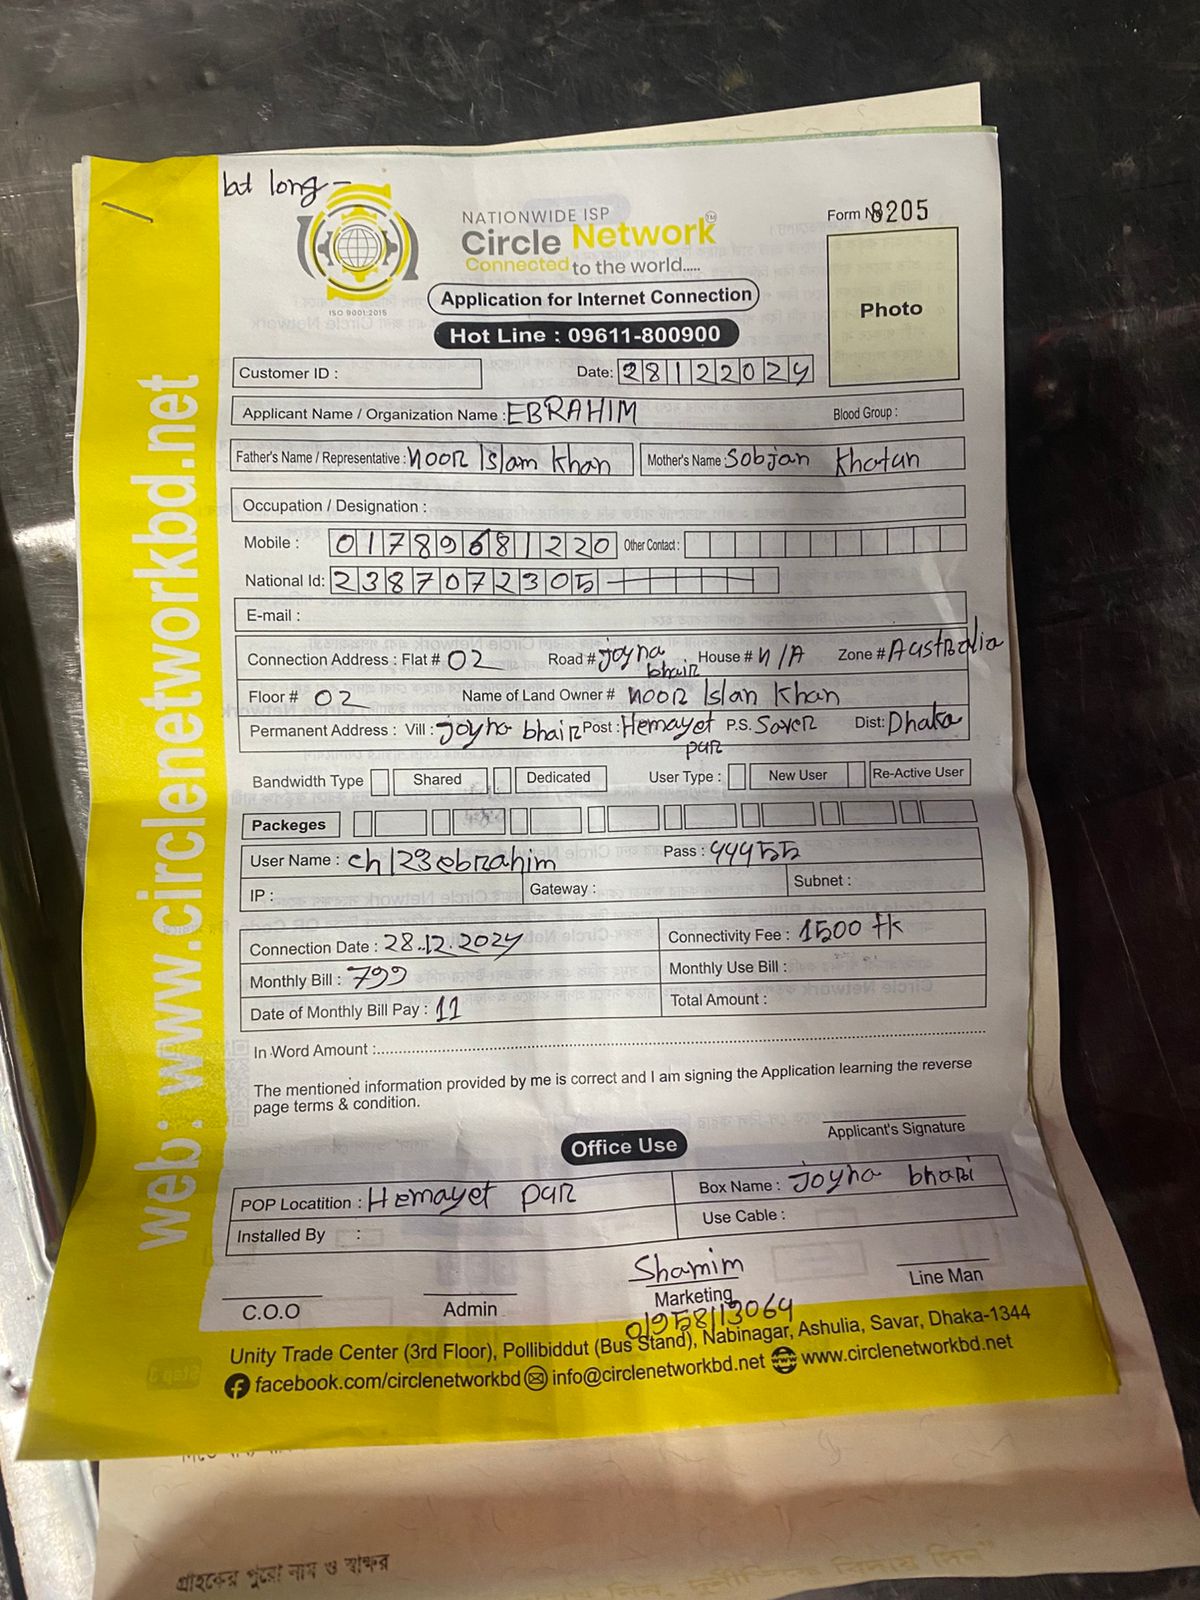 bd long -
NATIONWIDE ISP
Circle Network TM
Connected to the world.....
ISO 9001:2015
Form No 8205
Application for Internet Connection
Photo
Hot Line : 09611-800900
Customer ID :
Date: 28122024
Applicant Name / Organization Name : EBRAHIM Blood Group :
Father's Name / Representative : NOOR Islam khan Mother's Name : Sobjan Khatun
Occupation / Designation :
Mobile : 01789681220 Other Contact :
National Id: 2387072305
E-mail :
Connection Address : Flat # 02 Road # joyna bhair House # N/A Zone # Australia
Floor # 02 Name of Land Owner # NOOR Islan Khan
Permanent Address : Vill : joyna bhair Post : Hemayet pur P.S. Saver Dist: Dhaka
Bandwidth Type Shared Dedicated User Type : New User Re-Active User
Packeges
User Name : ch123ebrahim Pass : 444555
IP : Gateway : Subnet :
Connection Date : 28.12.2024 Connectivity Fee : 1500 tk
Monthly Bill : 799 Monthly Use Bill :
Date of Monthly Bill Pay : 11 Total Amount :
In Word Amount :
The mentioned information provided by me is correct and I am signing the Application learning the reverse
page terms & condition.
Applicant's Signature
Office Use
POP Locatition : Hemayet pur Box Name : Joyna bhari
Installed By : Use Cable :
Shamim
C.O.O Admin Marketing Line Man
01958113064
Unity Trade Center (3rd Floor), Pollibiddut (Bus Stand), Nabinagar, Ashulia, Savar, Dhaka-1344
facebook.com/circlenetworkbd info@circlenetworkbd.net www.circlenetworkbd.net
web: www.circlenetworkbd.net
গ্রাহকের পুরো নাম ও স্বাক্ষর